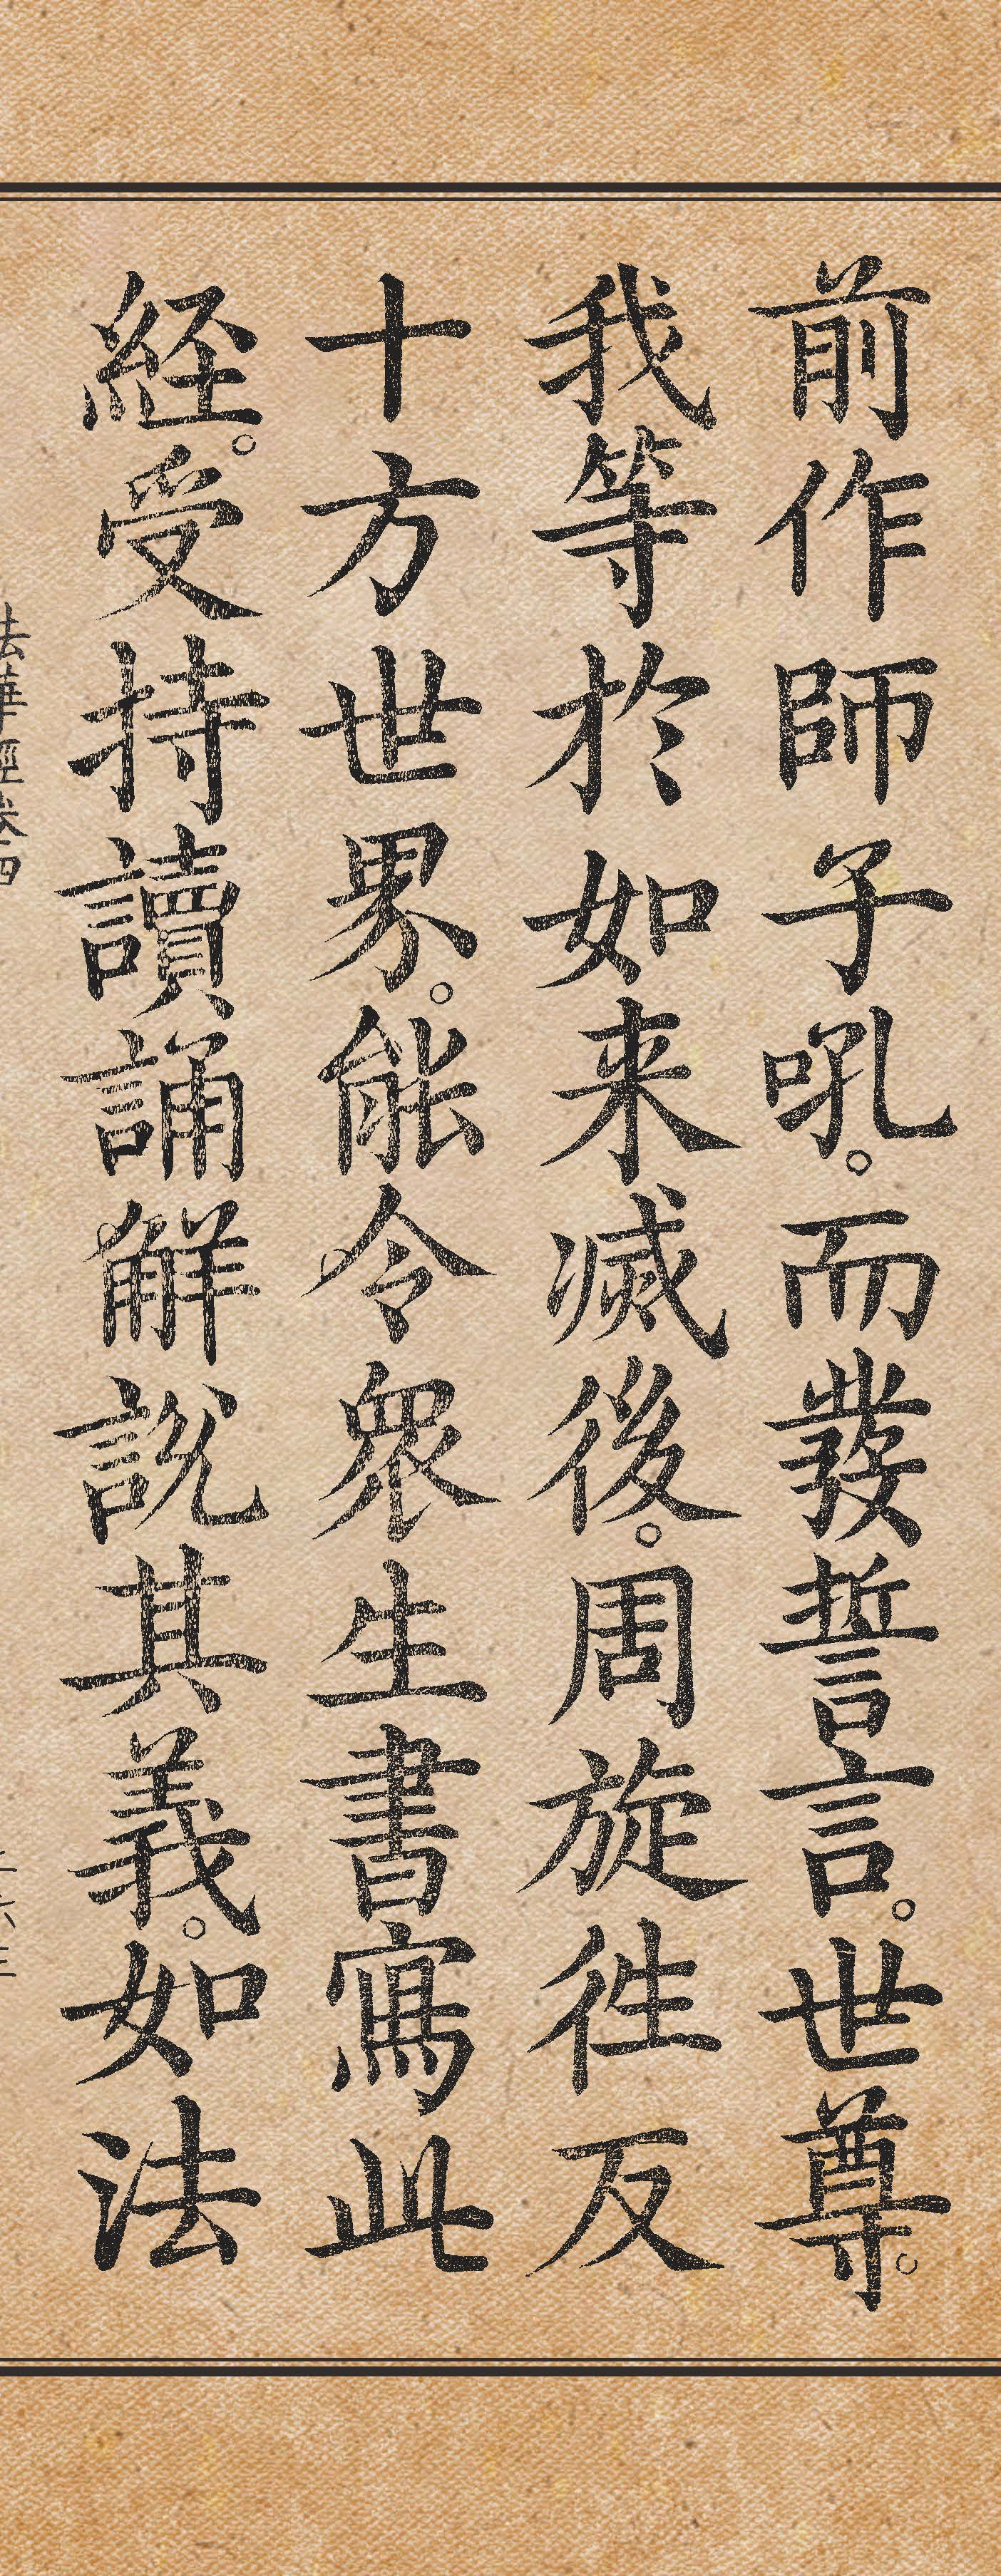 前作師子吼。而發誓言。世尊。
我等於如来滅後。周旋往反
十方世界。能令眾生書寫此
経。受持讀誦解說其義。如法
法華經卷四